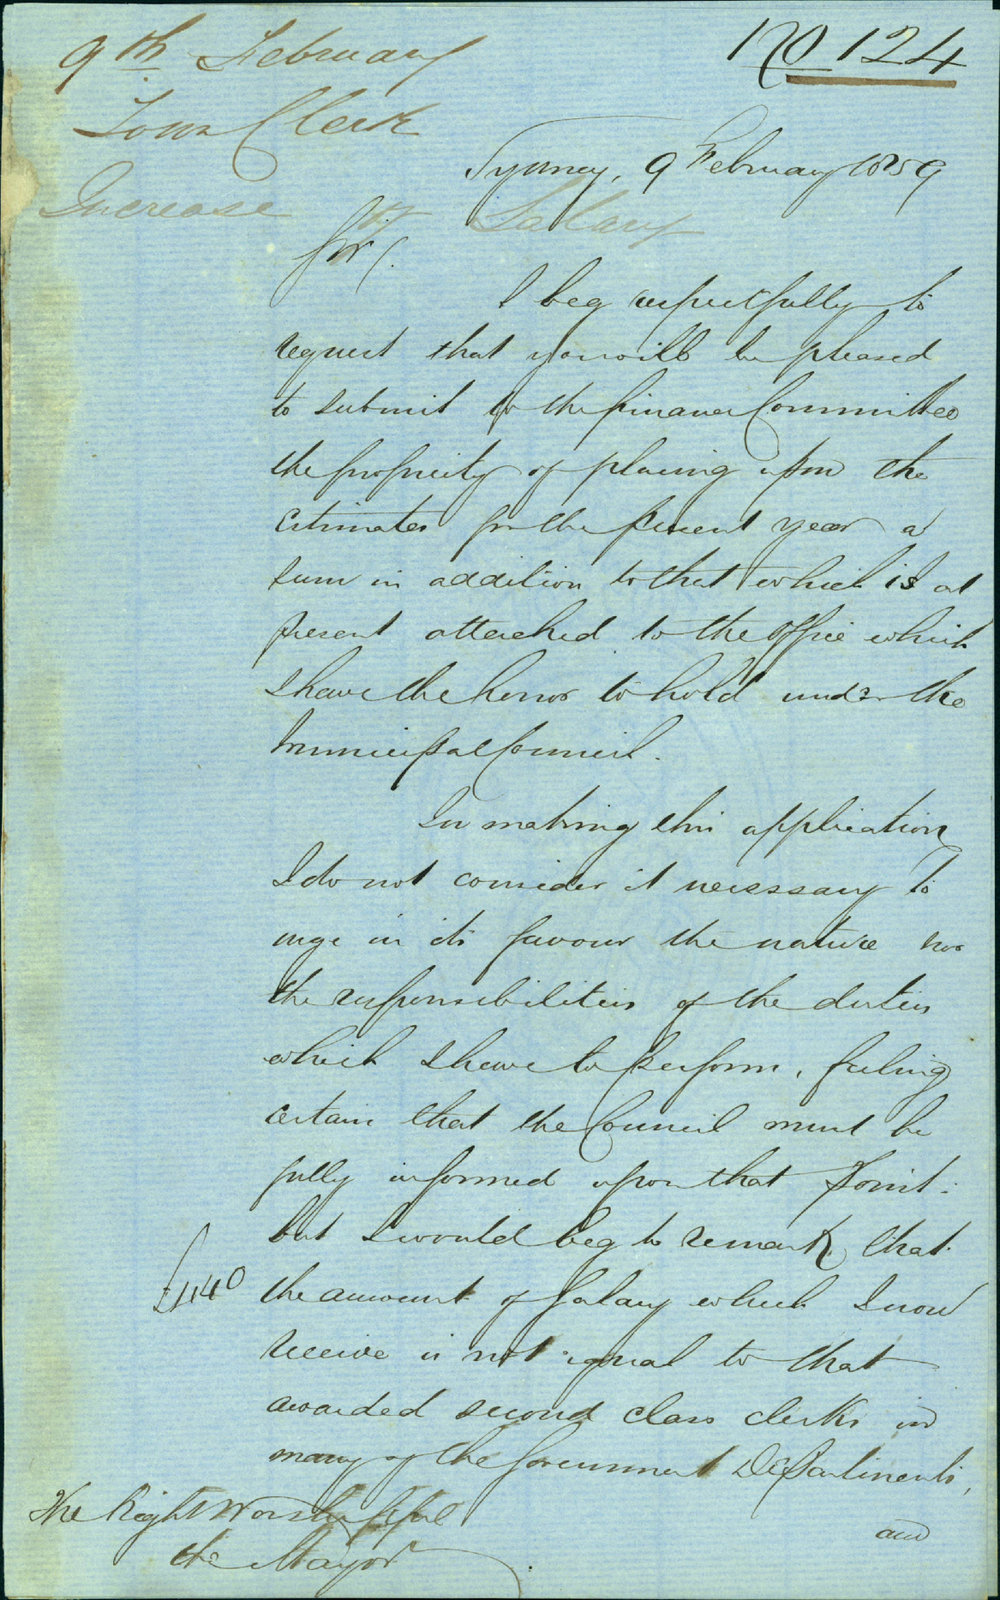 No 124
9th February
Town Clerk
Increase of Salary
Sydney, 9 February 1859
Sir,
I beg respectfully to
request that you will be pleased
to submit to the Finance Committee
the propriety of placing upon the
estimates for the present year a
sum in addition to that which is at
present attached to the Office which
I have the honor to hold under the
Municipal Council.
In making this application
I do not consider it necessary to
urge in its favour the nature nor
the responsibilities of the duties
which I have to perform, feeling
certain that the Council must be
fully informed upon that point:
but I would beg to remark that
the amount of Salary which I now
receive is not equal to that
awarded second class clerks in
many of the Government Departments,
and
The Right Worshipful
the Mayor